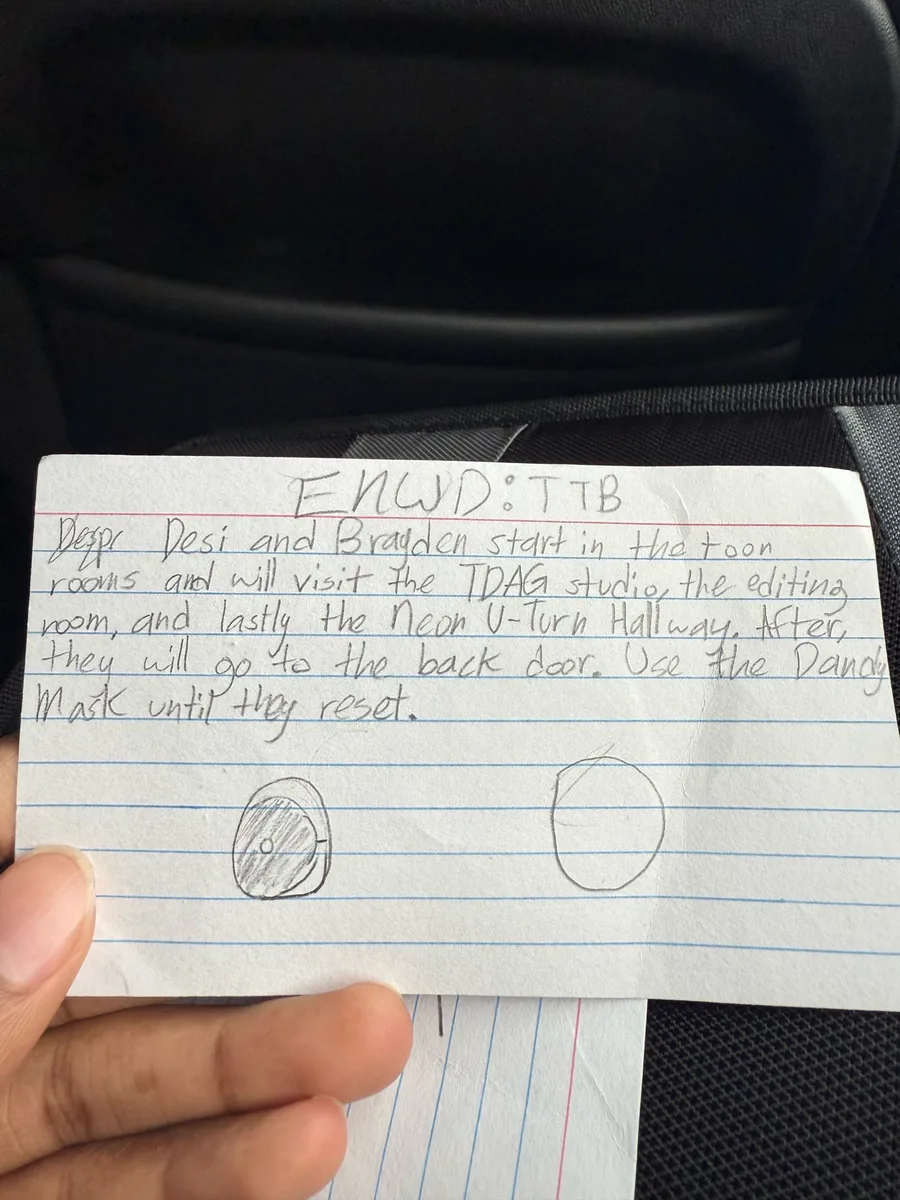 ENWD: TTB
Desi and Brayden start in the toon
rooms and will visit the TDAG studio, the editing
room, and lastly the Neon U-Turn Hallway. After,
they will go to the back door. Use the Dandy
Mask until they reset.